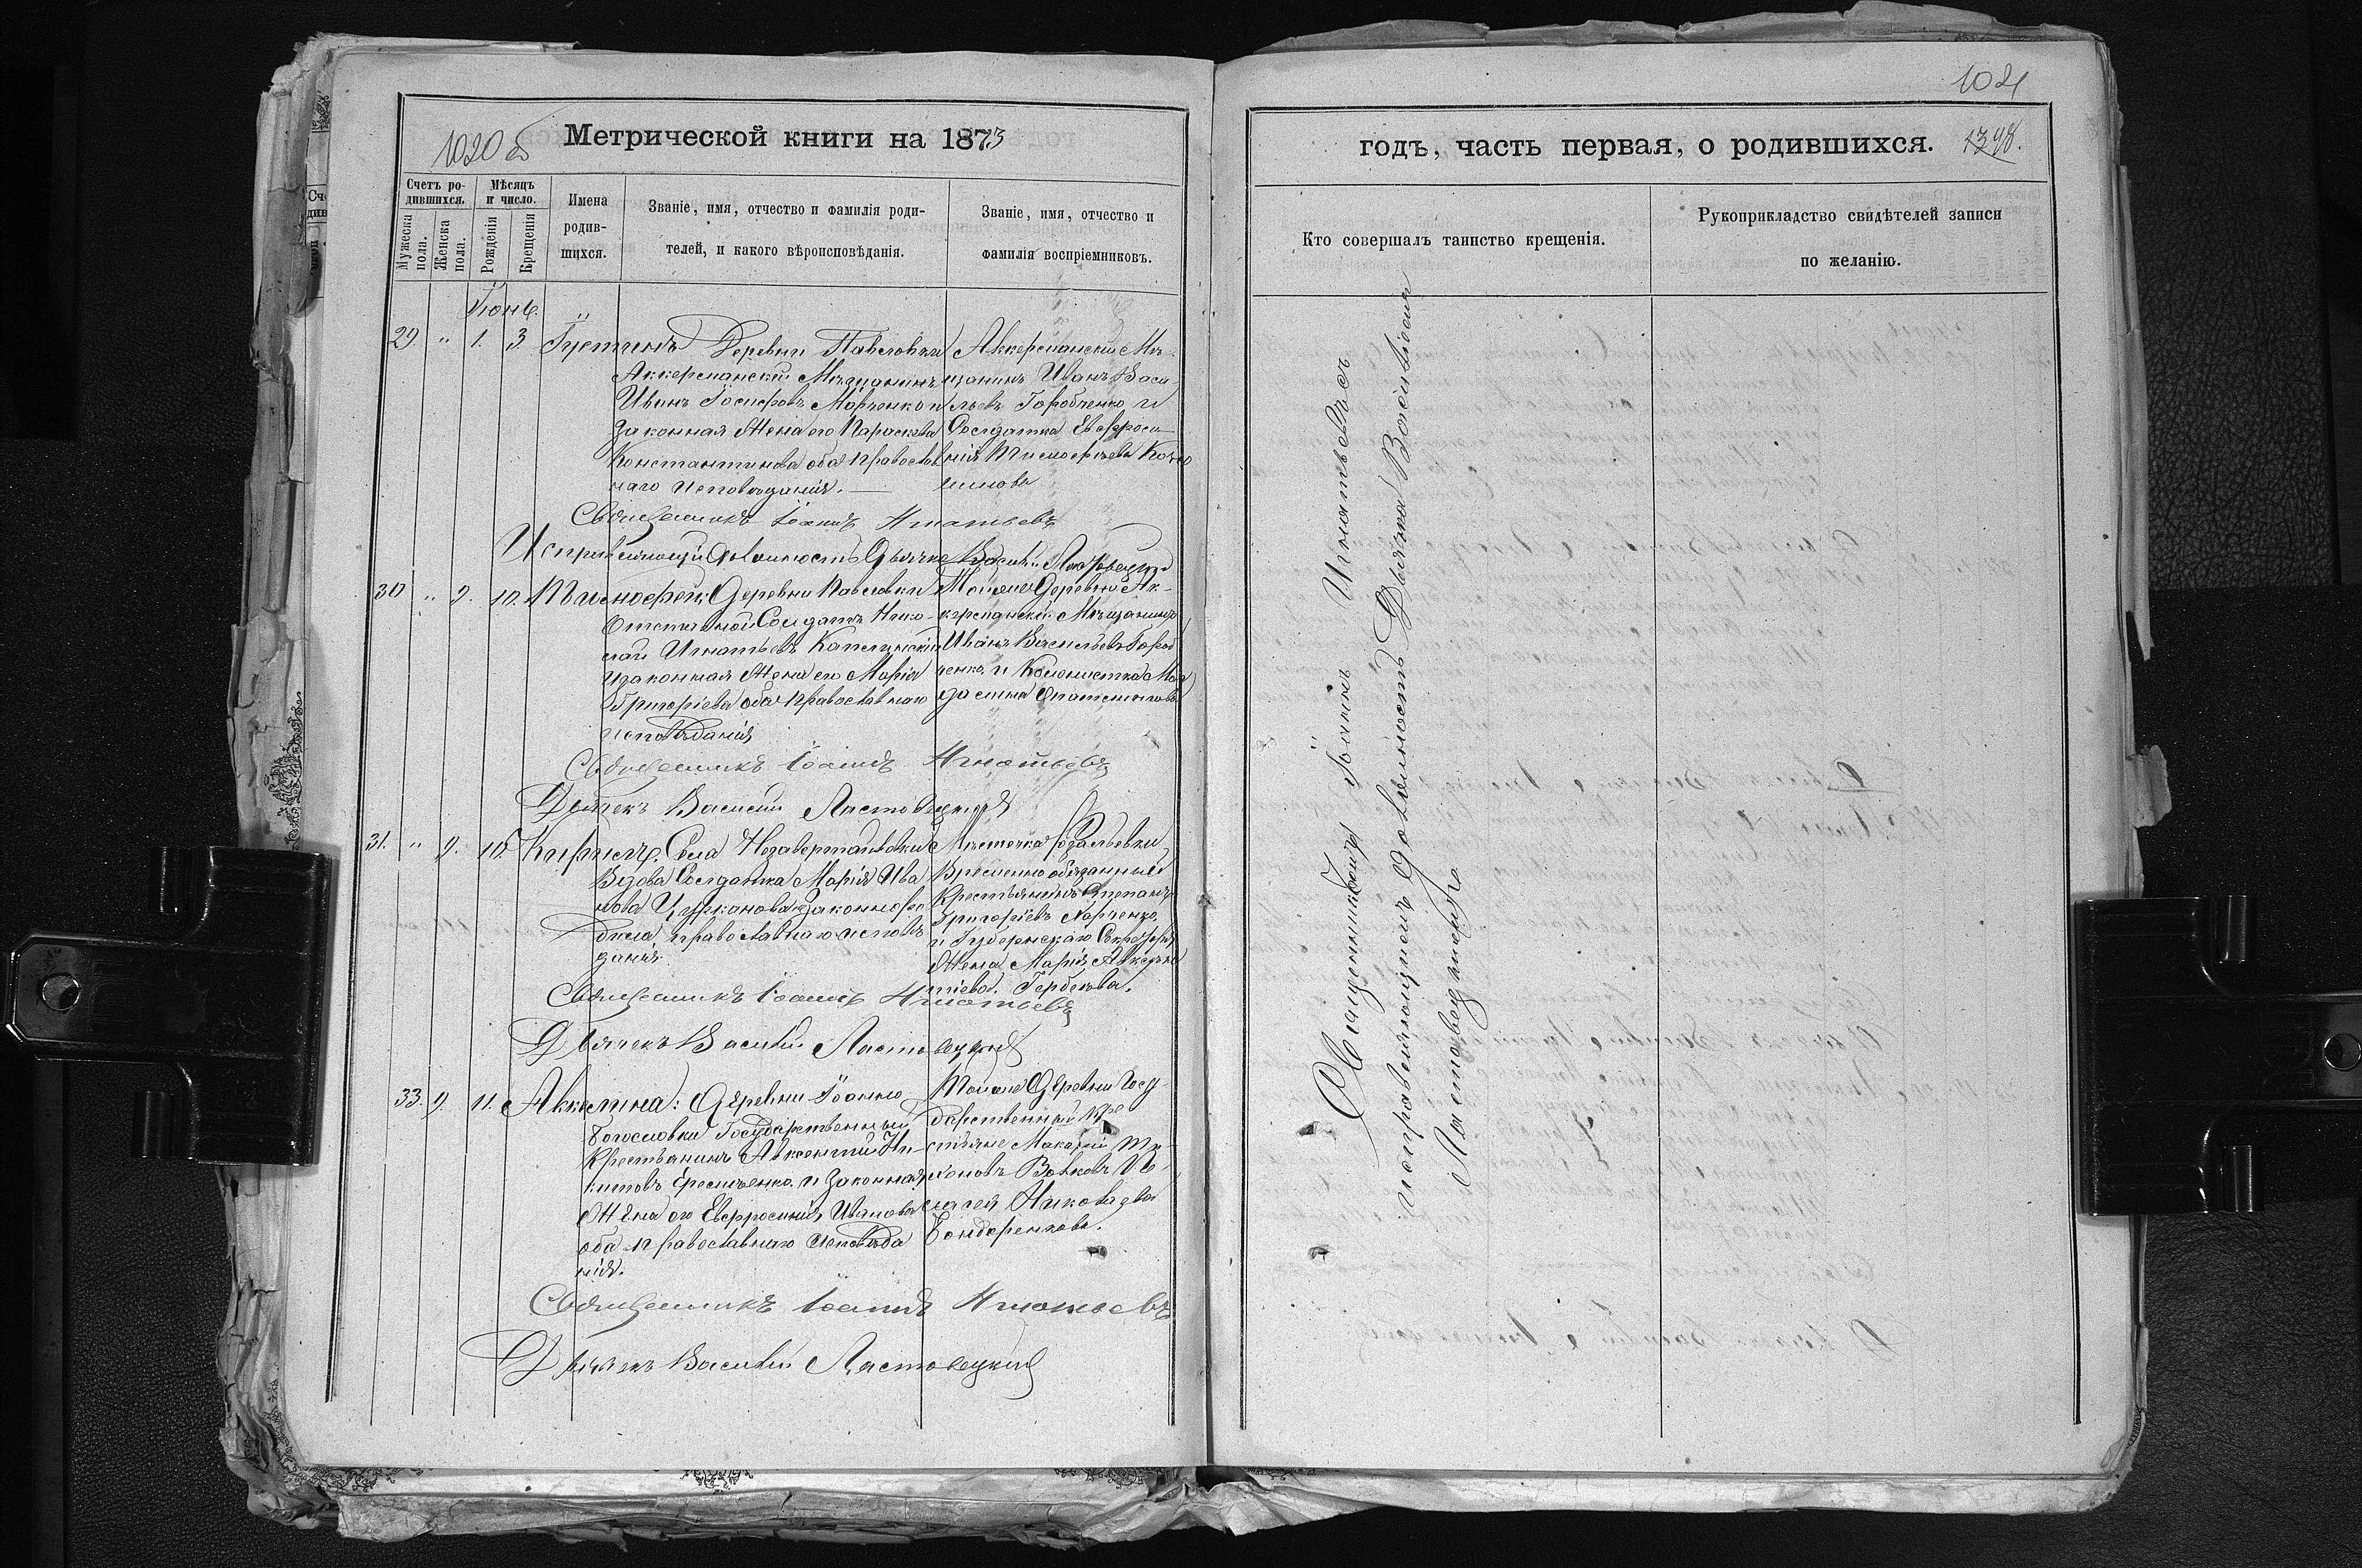 1020 об
Метрической книги на 1873
Счетъ ро-
дившихся.
Мужеска
пола.
Женска
пола.
Мѣсяцъ
и число.
Рожденія
Крещенія
Имена
родив-
шихся.
Званіе, имя, отчество и фамилія роди-
телей, и какого вѣроисповѣданія.
Званіе, имя, отчество и
фамилія воспріемниковъ.
Іюнь.
29 " 1. 3. Іустинъ
Деревни Павловки
Аккерманскій Мѣщанинъ
Иванъ Марченко и
законная Жена его Параскева
Константинова оба Православ
наго исповѣданія.
Аккерманскій Мѣ
щанинъ Иванъ Васи
льевъ Горобченко и
Солдатка Евфроси
нія Тимофѣева
Священникъ Іоаннъ Игнатьевъ
Исправляющій должность Дьячка Василій Ластовецкій
30 " 9. 10. Тимофей:
Деревни Павловки
Отставной Солдатъ Нико-
лай Игнатьевъ
и законная Жена его Марія
Григоріева оба Православнаго
исповѣданія
Тойже Деревни Ак-
керманскій Мѣщанинъ
Иванъ Васильевъ Гороб
ченко, и Колонистка Маг
далина
Священникъ Іоаннъ Игнатьевъ
Дьячекъ Василій Ластовецкій
31. " 9. 10. Кириллъ.
Села Незавертайловки
Вдова Солдатка Марія Ива
нова незаконноро
дила, православнаго исповѣ
данія
Мѣстечка
Временно обязанный
Крестьянинъ Степанъ
Григорьевъ Харченко,
и Губернскаго Секретаря
Жена Марія Авксен
тіева Гербелова.
Священникъ Іоаннъ Игнатьевъ
Дьячекъ Василій Ластовецкій
33. 9. 11. Аккилина:
Деревни Іоанно
Богословки Государственный
Крестьянинъ Авксентій Ни-
китовъ и законная
Жена его Евфросинія Иванова
оба православнаго исповѣда
нія.
Тойже Деревни Госу
дарственный Кре
стьяне Макарій Ти
хоновъ Волковъ и Пе
лагея Николаева
Бондаренкова.
Священникъ Іоаннъ Игнатьевъ
Дьячекъ Василій Ластовецкій
1021
годъ, часть первая, о родившихся.
1348.
Кто совершалъ таинство крещенія.
Рукоприкладство свидѣтелей записи
по желанію.
Священникъ Іоаннъ Игнатьевъ съ
исправляющимъ должность Дьячка Василіемъ
Ластовецкимъ